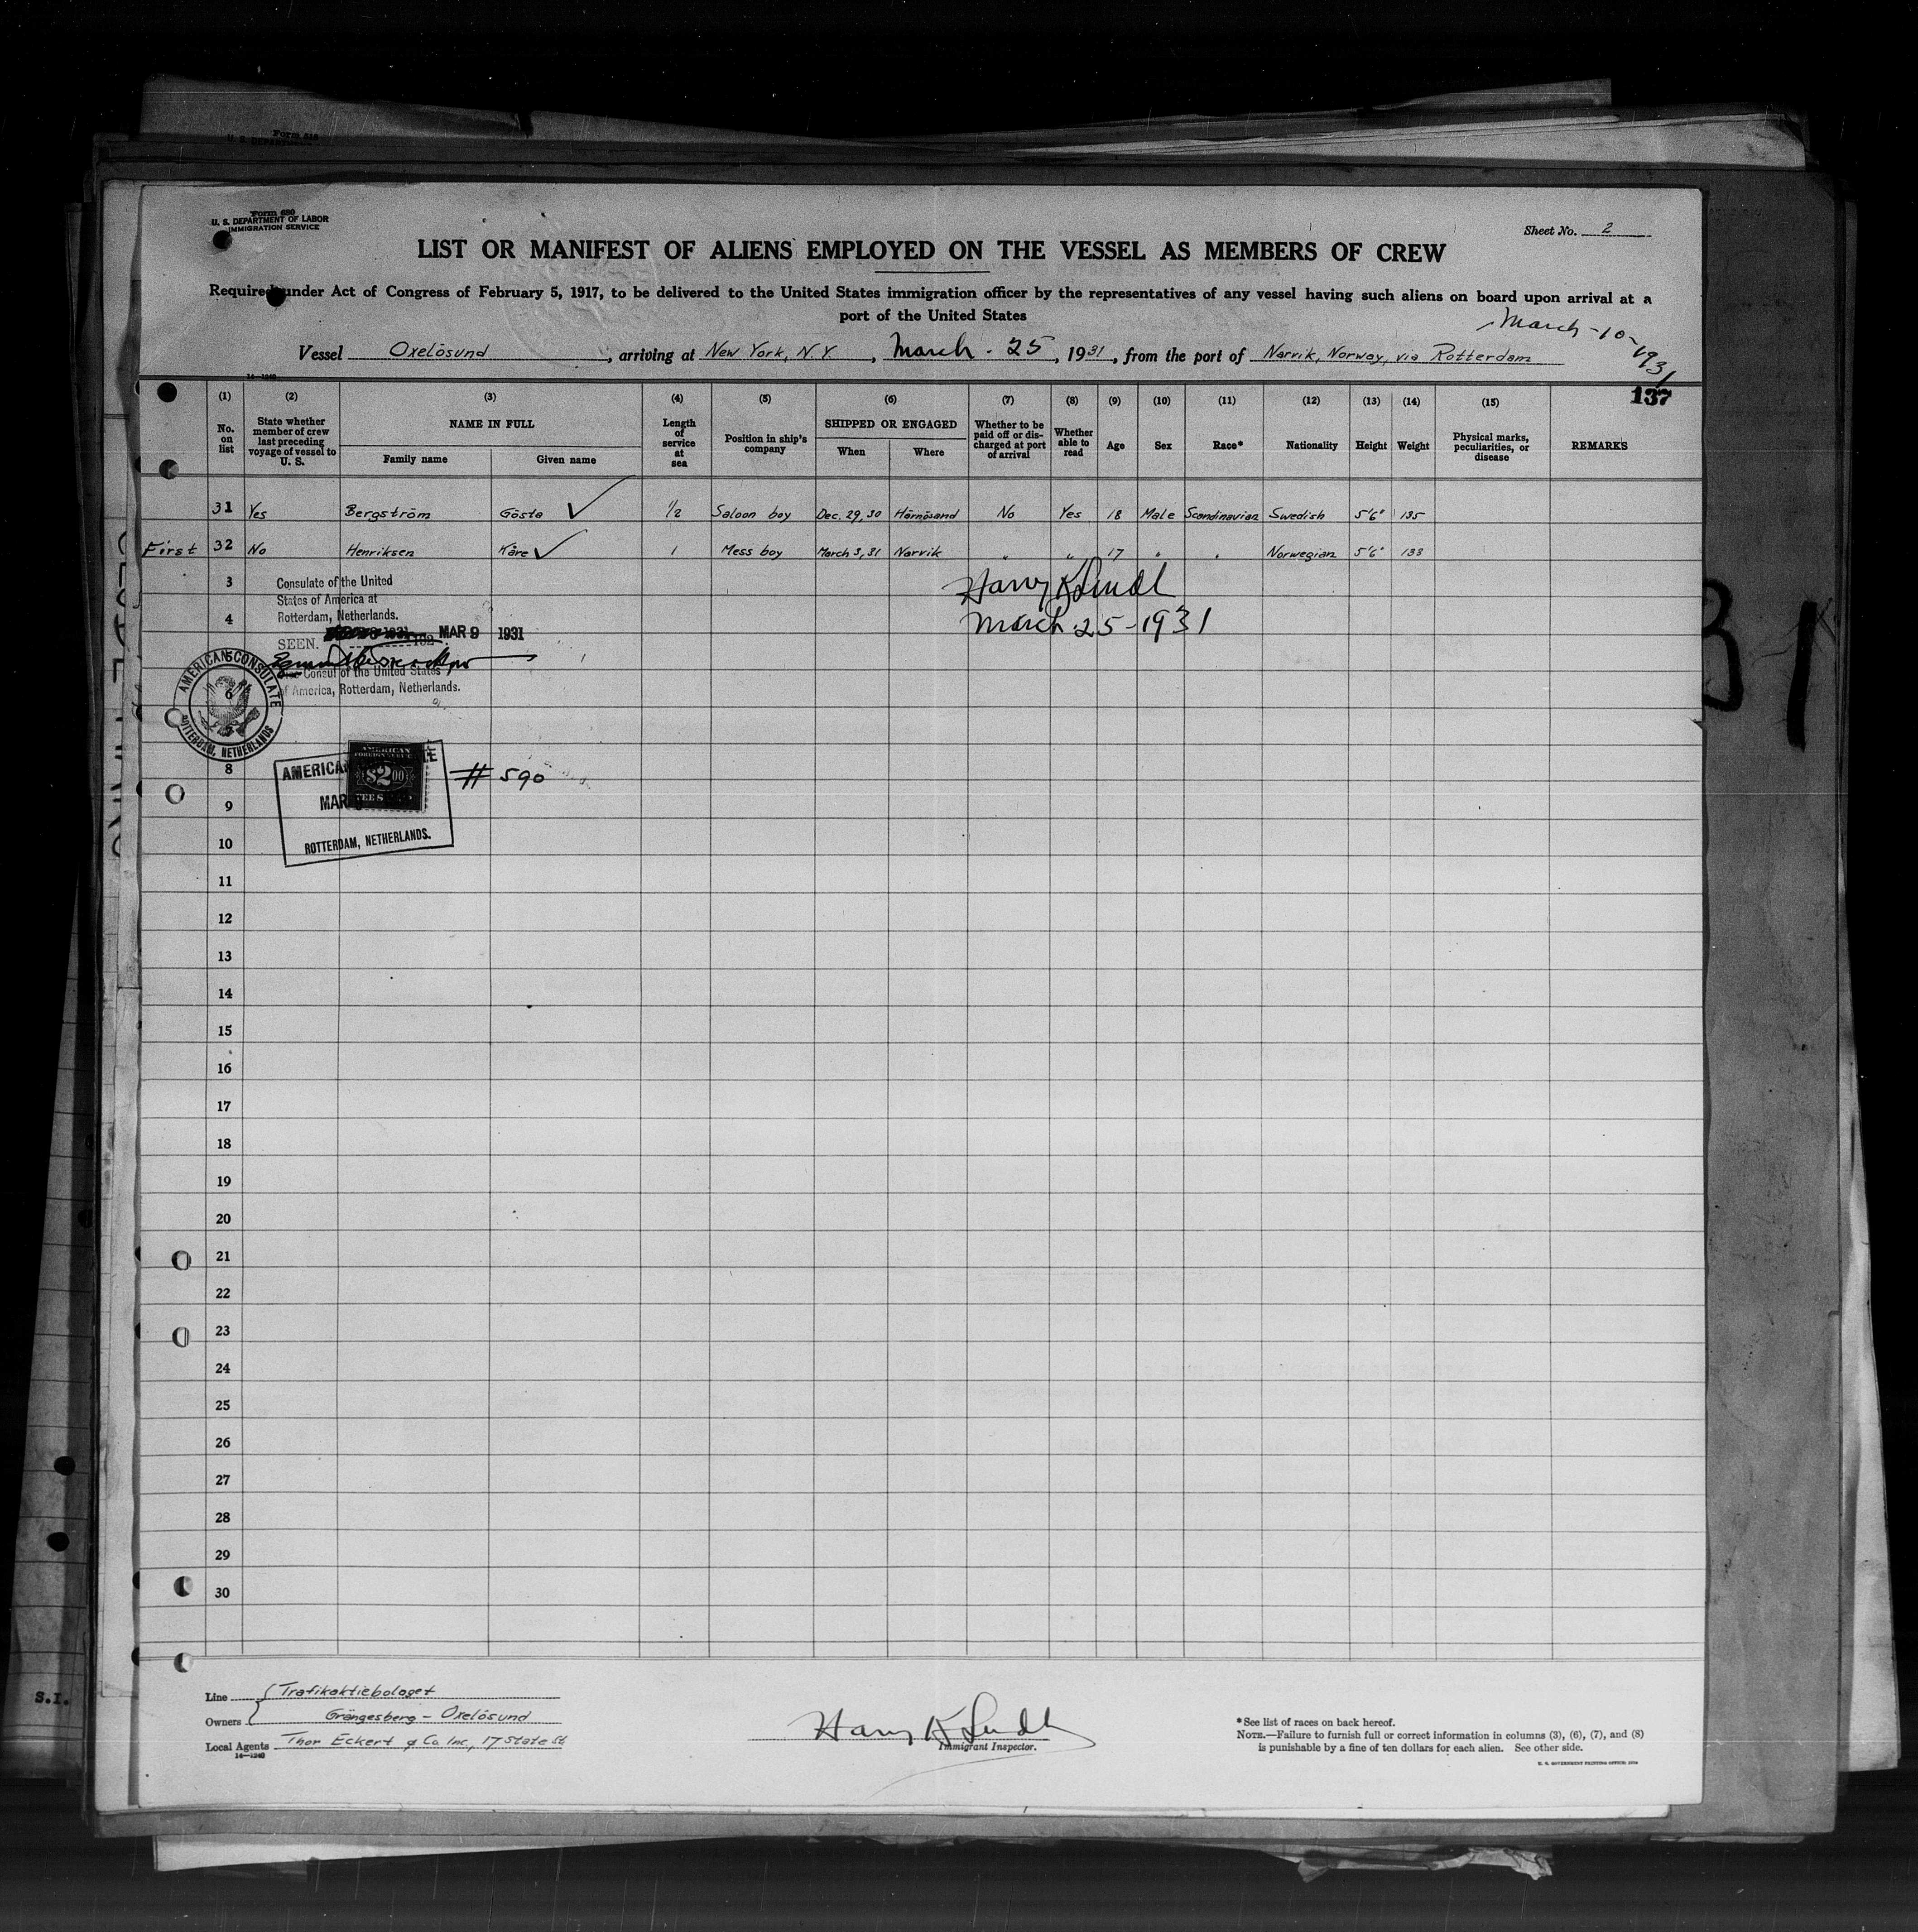 Form 516
U. S. DEPARTMENT
Form 680
U. S. DEPARTMENT OF LABOR
IMMIGRATION SERVICE
Sheet No. 2
LIST OR MANIFEST OF ALIENS EMPLOYED ON THE VESSEL AS MEMBERS OF CREW
Required under Act of Congress of February 5, 1917, to be delivered to the United States immigration officer by the representatives of any vessel having such aliens on board upon arrival at a
port of the United States
March-10-1931
Vessel Oxelösund, arriving at New York, N.Y., March - 25, 1931, from the port of Narvik, Norway, via Rotterdam
14—1240
137
(1) (2) (3) (4) (5) (6) (7) (8) (9) (10) (11) (12) (13) (14) (15)
No. on list
State whether member of crew last preceding voyage of vessel to U. S.
NAME IN FULL
Family name
Given name
Length of service at sea
Position in ship's company
SHIPPED OR ENGAGED
When
Where
Whether to be paid off or discharged at port of arrival
Whether able to read
Age
Sex
Race*
Nationality
Height
Weight
Physical marks, peculiarities, or disease
REMARKS
31 Yes Bergström Gösta ✓ 1/2 Saloon boy Dec. 29, 30 Härnösand No Yes 18 Male Scandinavian Swedish 5'6" 135
First 32 No Henriksen Kåre ✓ 1 Mess boy March 3, 31 Narvik " " 17 " " Norwegian 5'6" 133
3
Consulate of the United
States of America at
Rotterdam, Netherlands.
Harry K Lindl
4
March 25-1931
SEEN. MAR 9 1931
5
Vice Consul of the United States
of America, Rotterdam, Netherlands.
AMERICAN CONSULATE
ROTTERDAM, NETHERLANDS
6
8
AMERICAN
FOREIGN SERVICE
$2.00
FEE STAMP
# 590
AMERICAN CONSULATE
MAR 9
ROTTERDAM, NETHERLANDS.
9
10
11
12
13
14
15
16
17
18
19
20
21
22
23
24
25
26
27
28
29
30
S.I.
Line Trafikaktiebolaget
Owners Grängesberg - Oxelösund
Local Agents Thor Eckert & Co. Inc., 17 State St
14—1240
Harry K Lindl
Immigrant Inspector.
*See list of races on back hereof.
NOTE.—Failure to furnish full or correct information in columns (3), (6), (7), and (8)
is punishable by a fine of ten dollars for each alien. See other side.
U. S. GOVERNMENT PRINTING OFFICE